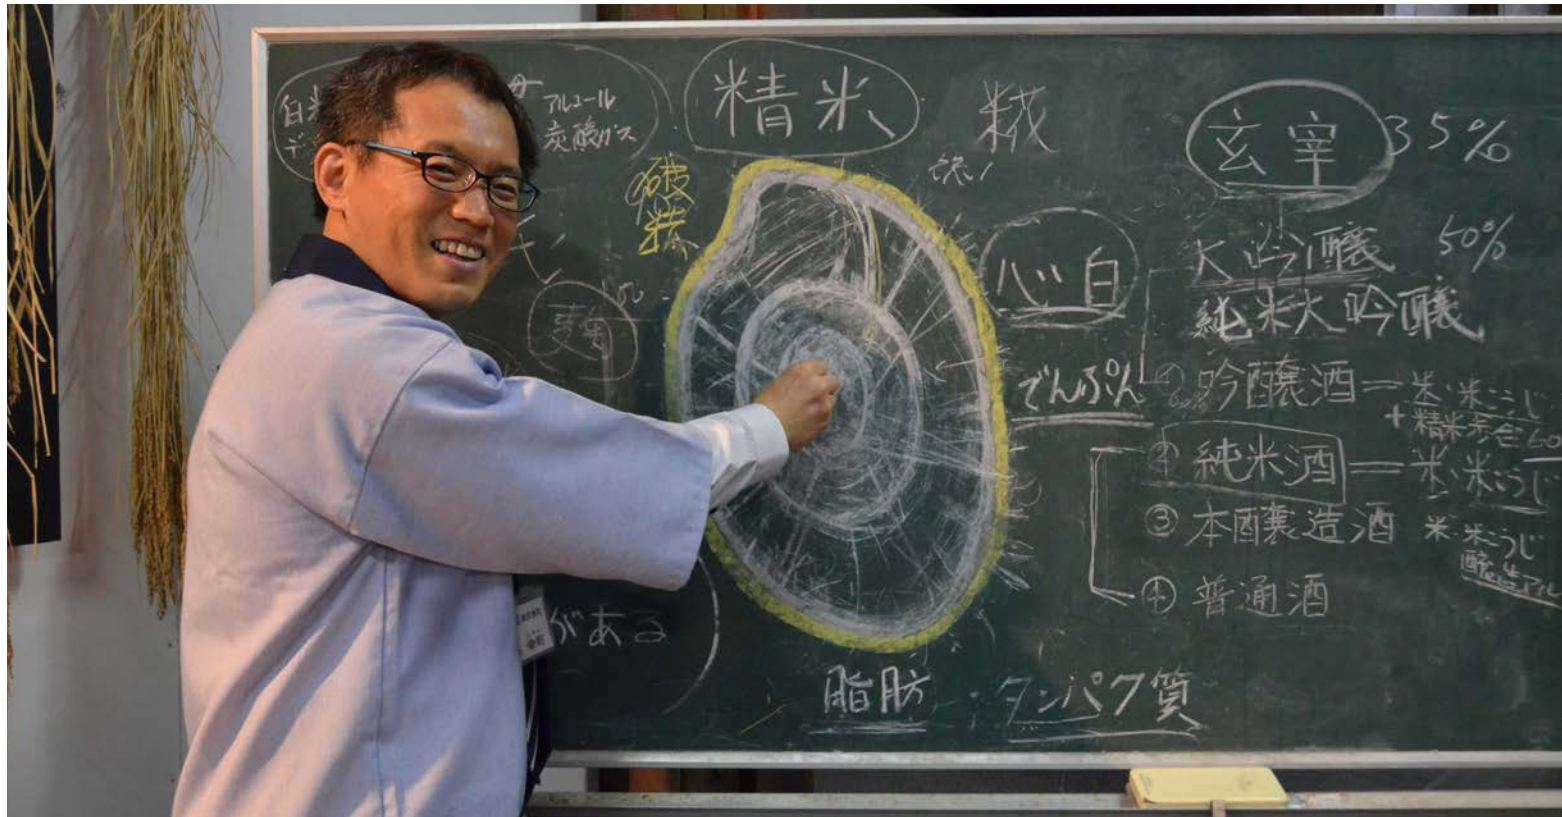 アルコール
炭酸ガス
精米
糀
玄宰 35%
破精
心白
大吟醸 50%
純米大吟醸
でんぷん
① 吟醸酒 ー 米・米こうじ
+ 精米歩合 60
② 純米酒 ー 米・米こうじ
③ 本醸造酒 米・米こうじ
④ 普通酒
がある
脂肪・タンパク質